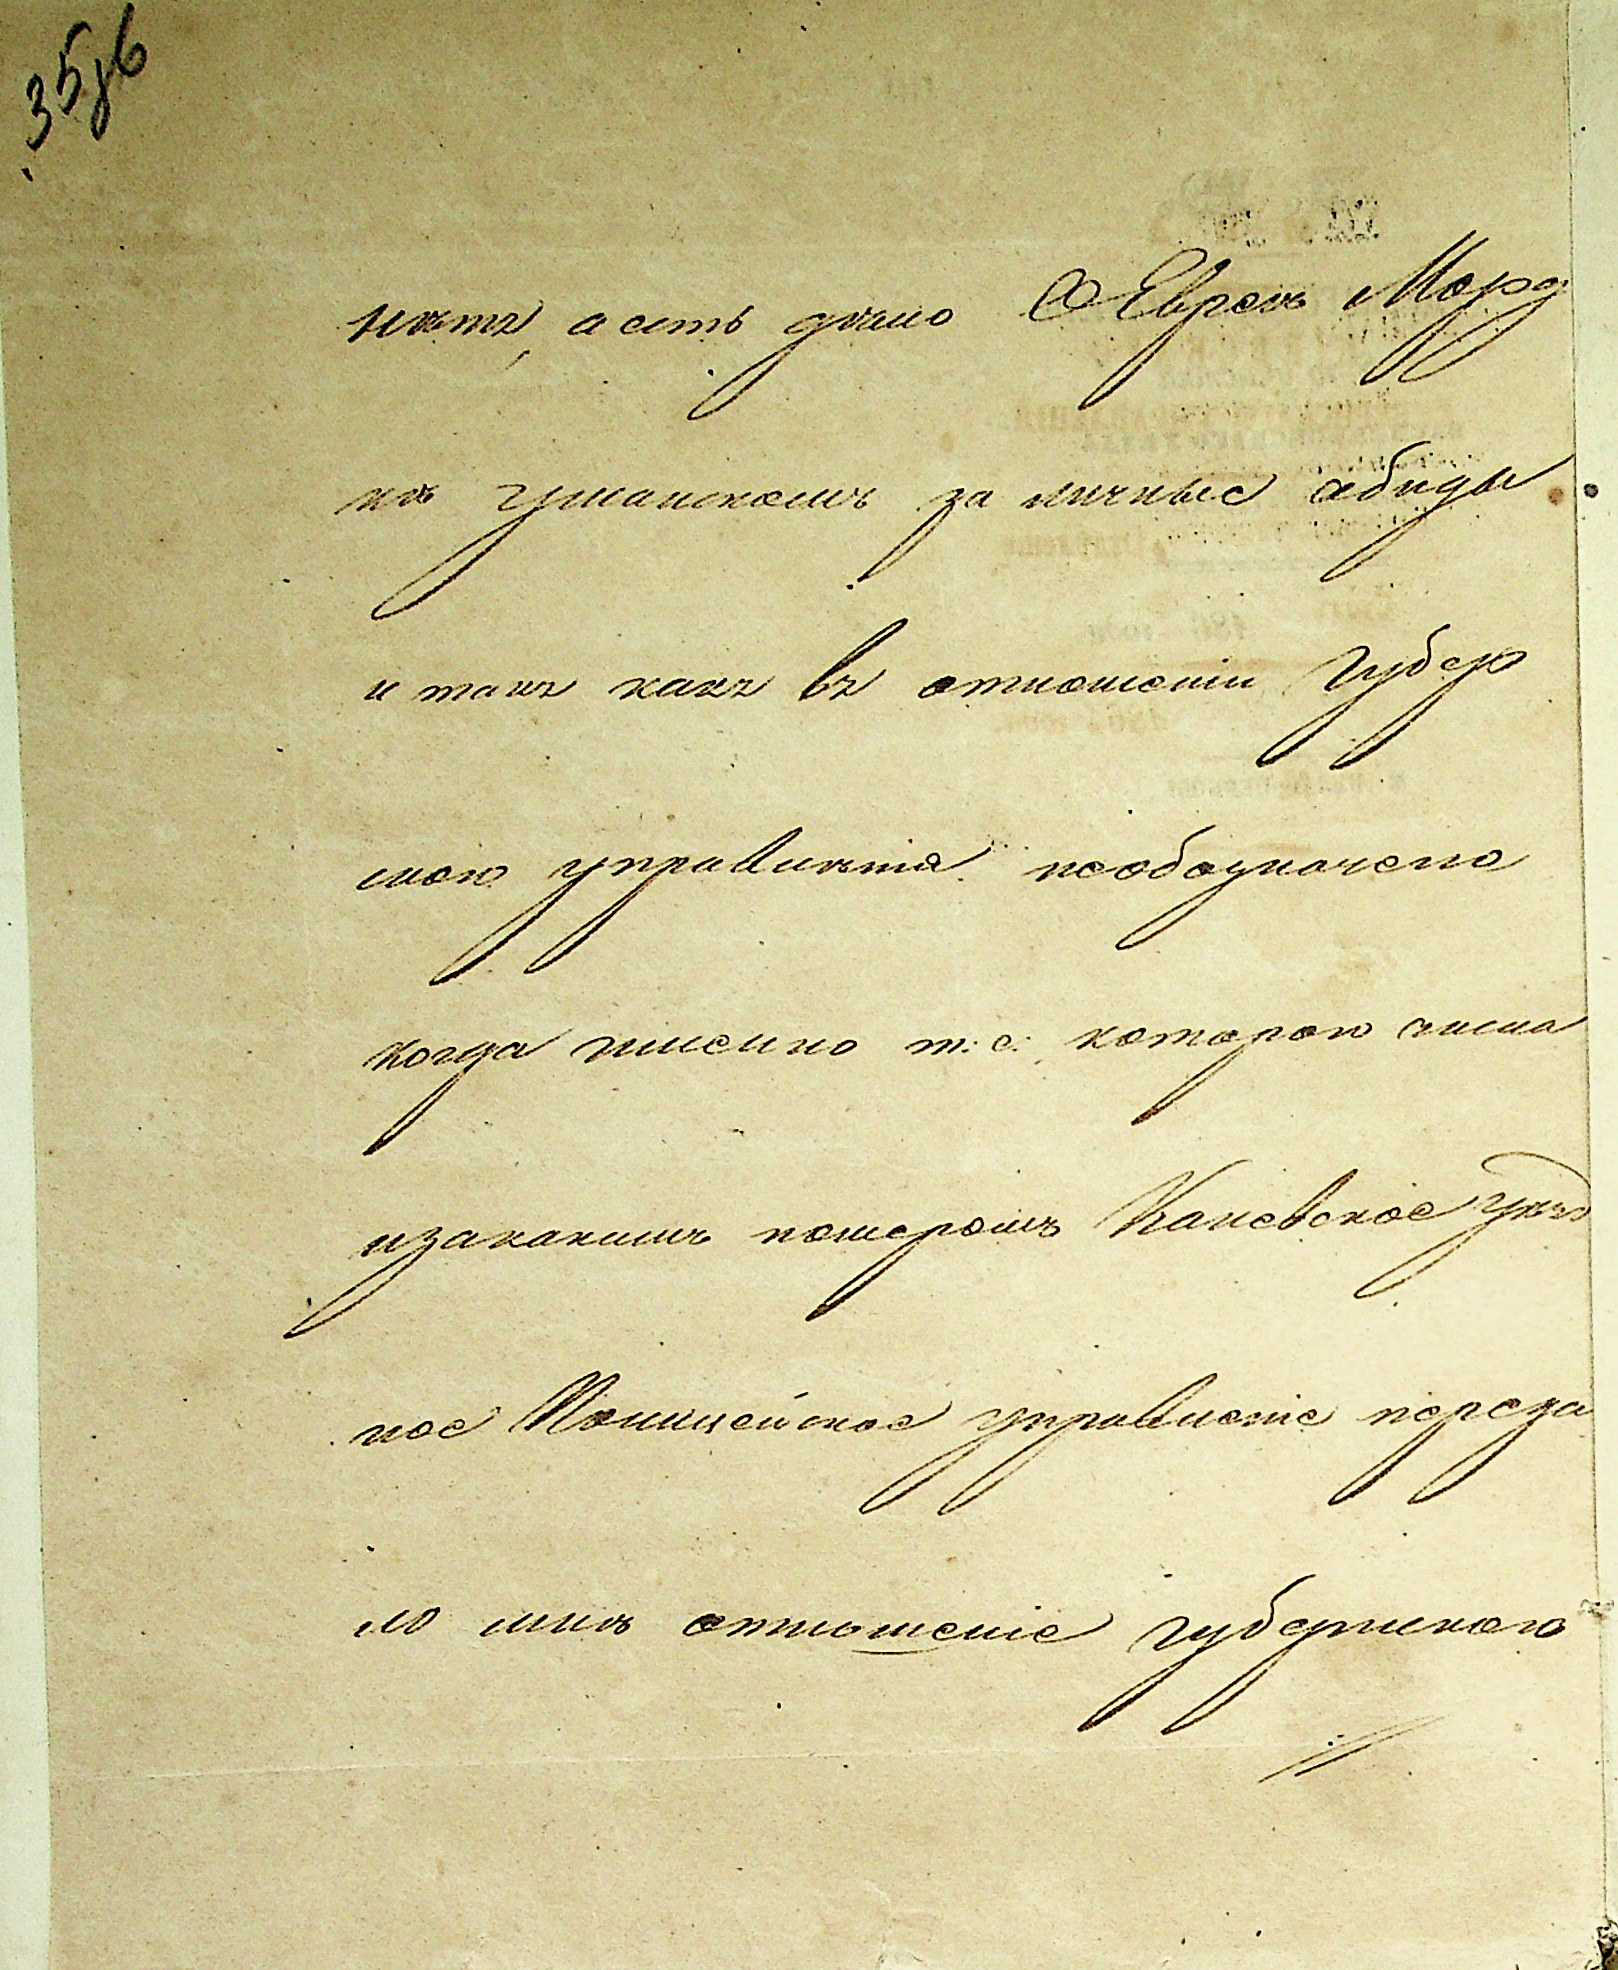 35об
нѣтъ, а есть дѣло О Евреѣ Морд
кѣ Гуманскомъ за личные обиды
и такъ какъ въ отношеніи Губер
скаго управленія необозначено
когда именно т: е: котораго числа
изакакимъ номеромъ Каневское Уѣзд
ное Полицейское управленіе переда
ло мнѣ отношеніе Губернскаго